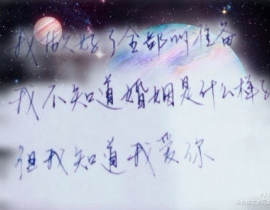 我做好了全部的准备
我不知道婚姻是什么样
但我知道我爱你